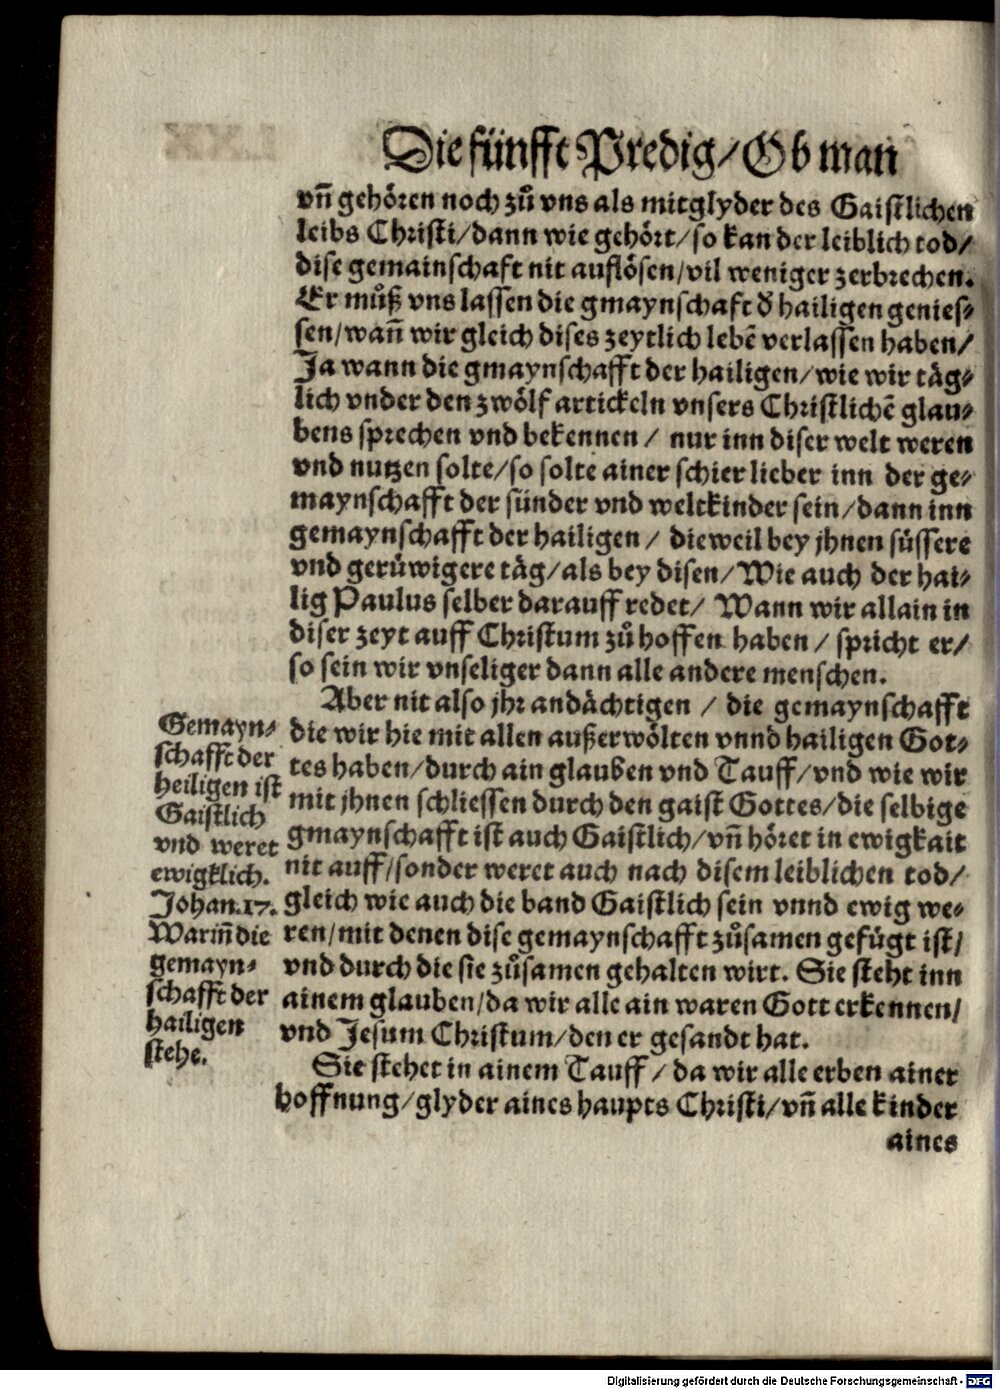 Die fünfft Predig/Ob man
vñ gehören noch zů vns als mitglyder des Gaistlichen
leibs Christi/dann wie gehört/so kan der leiblich tod/
dise gemainschaft nit auflösen/vil weniger zerbrechen.
Er můß vns lassen die gmaynschaft d̄ hailigen genies⸗
sen/wañ wir gleich dises zeytlich lebē verlassen haben/
Ja wann die gmaynschafft der hailigen/wie wir täg⸗
lich vnder den zwölf artickeln vnsers Christlichē glau⸗
bens sprechen vnd bekennen / nur inn diser welt weren
vnd nutzen solte/so solte ainer schier lieber inn der ge⸗
maynschafft der sünder vnd weltkinder sein/dann inn
gemaynschafft der hailigen / dieweil bey jhnen süssere
vnd gerüwigere täg/als bey disen/Wie auch der hai⸗
lig Paulus selber darauff redet/ Wann wir allain in
diser zeyt auff Christum zů hoffen haben / spricht er/
so sein wir vnseliger dann alle andere menschen.
Aber nit also jhr andächtigen / die gemaynschafft
die wir hie mit allen außerwölten vnnd hailigen Got⸗
tes haben/durch ain glauben vnd Tauff/vnd wie wir
mit jhnen schliessen durch den gaist Gottes/die selbige
gmaynschafft ist auch Gaistlich/vñ höret in ewigkait
nit auff/sonder weret auch nach disem leiblichen tod/
gleich wie auch die band Gaistlich sein vnnd ewig we⸗
ren/mit denen dise gemaynschafft zůsamen gefügt ist/
vnd durch die sie zůsamen gehalten wirt. Sie steht inn
ainem glauben/da wir alle ain waren Gott erkennen/
vnd Jesum Christum/den er gesandt hat.
Sie stehet in ainem Tauff / da wir alle erben ainer
hoffnung/glyder aines haupts Christi/vñ alle kinder
aines
Gemayn⸗
schafft der
heiligen ist
Gaistlich
vnd weret
ewigklich.
Johan.17.
Wariñ die
gemayn⸗
schafft der
hailigen
stehe.
Digitalisierung gefördert durch die Deutsche Forschungsgemeinschaft - DFG